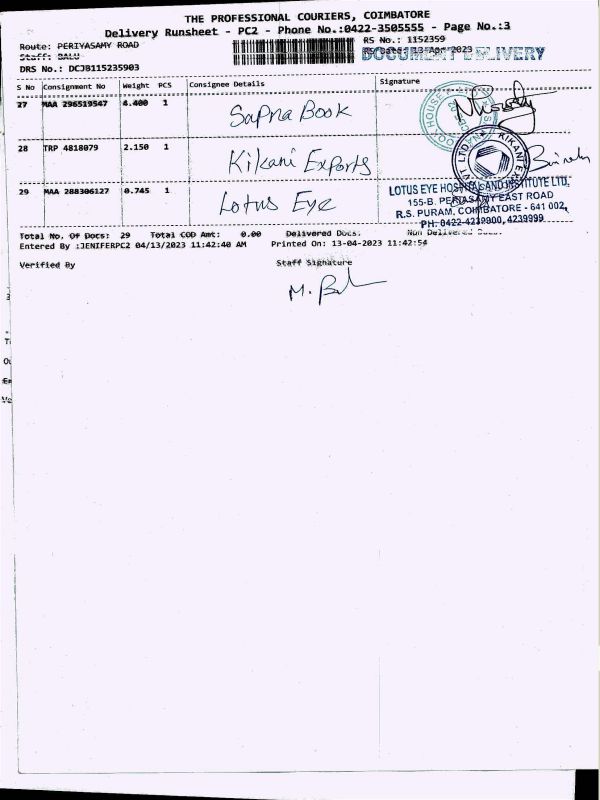 THE PROFESSIONAL COURIERS, COIMBATORE
Delivery Runsheet - PC2 - Phone No.:0422-3505555 - Page No.:3
Route: PERIYASAMY ROAD RS No.: 1152359
Staff: BALU RS Date: 13-Apr-2023 DOCUMENT DELIVERY
DRS No.: DCJB115235903
S No Consignment No Weight PCS Consignee Details Signature
27 MAA 296519547 4.400 1 Sapna Book
28 TRP 4818079 2.150 1 Kikani Exports
29 MAA 288306127 0.745 1 Lotus Eye
LOTUS EYE HOSPITAL AND INSTITUTE LTD,
155-B, PERIASAMY EAST ROAD
R.S. PURAM, COIMBATORE - 641 002,
PH: 0422-4239900, 4239999
Total No. Of Docs: 29 Total COD Amt: 0.00 Delivered Docs. Non Delivered
Entered By :JENIFERPC2 04/13/2023 11:42:40 AM Printed On: 13-04-2023 11:42:54
Verified By Staff Signature